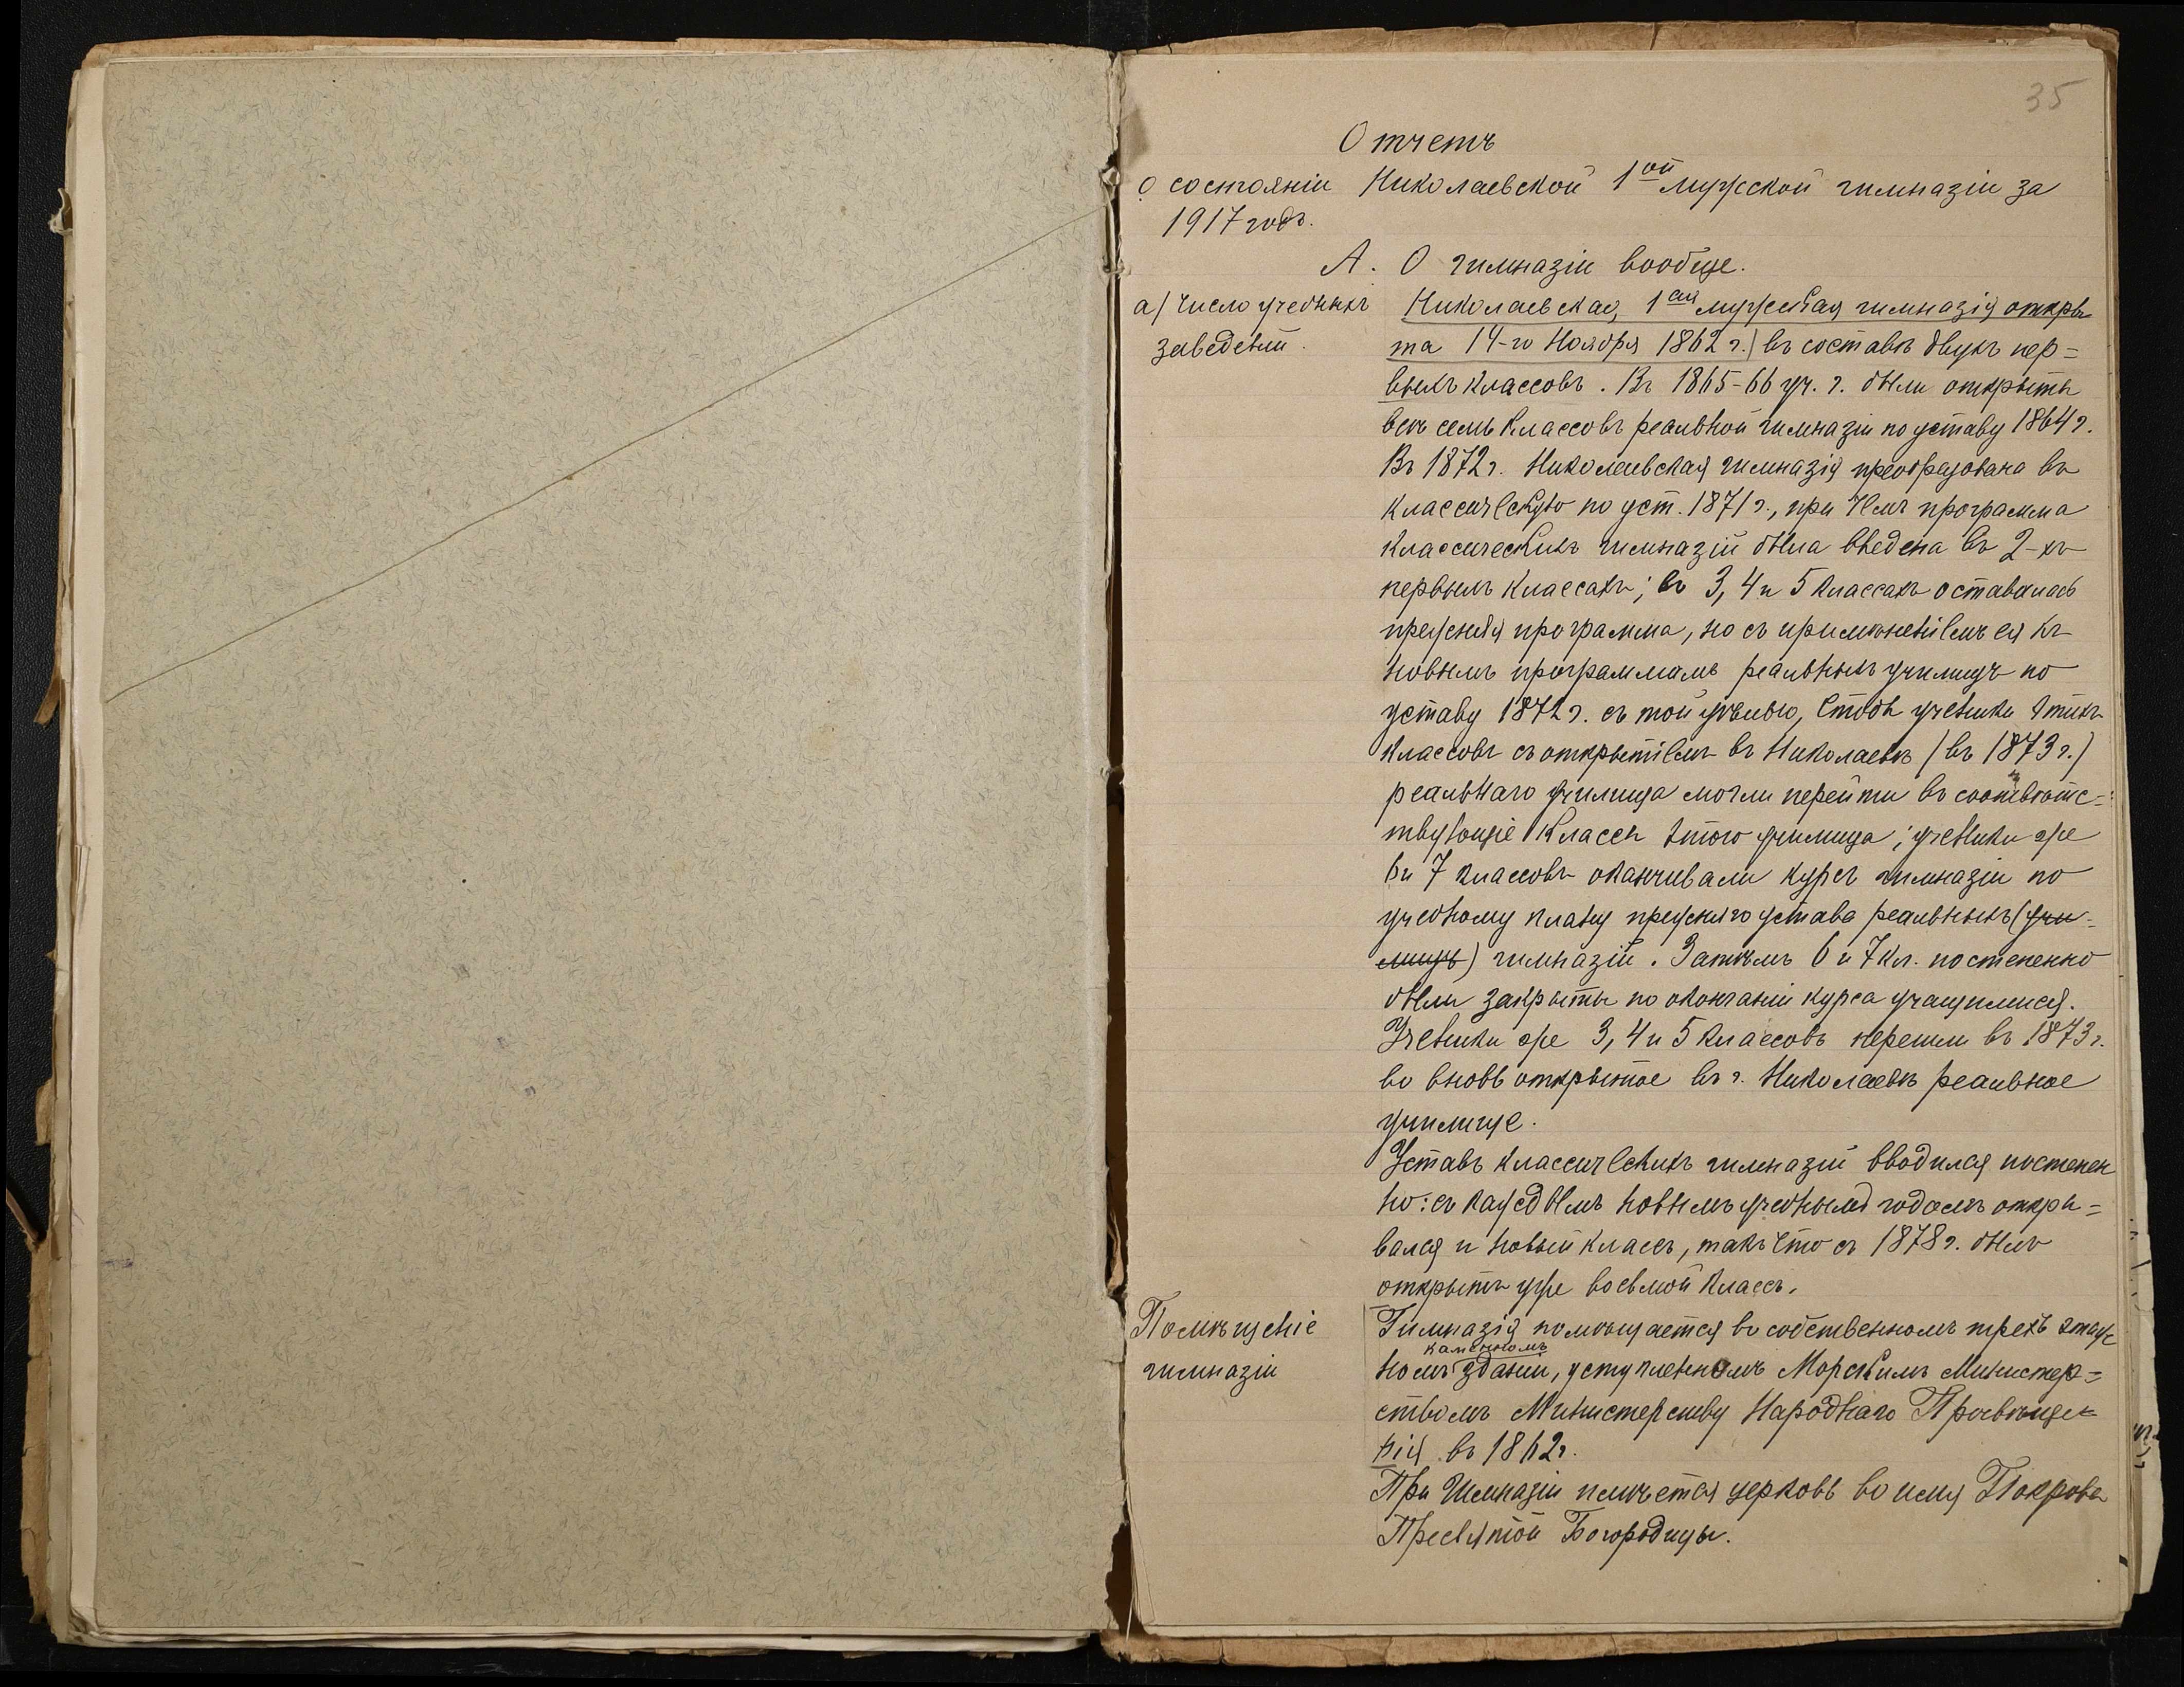 35
Отчетъ
о состояніи Николаевской 1ой мужской гимназіи за
1917 годъ.
А. О гимназіи вообще.
а) Число учебныхъ
заведеній.
Николаевская 1ая мужская гимназія откры
та 14-го Ноября 1862 г.) въ составѣ двухъ пер=
выхъ классовъ. Въ 1865-66 уч. г. были открыты
всѣ семь классовъ реальной гимназіи по уставу 1864 г.
Въ 1872 г. Николаевская гимназія преобразована въ
классическую по уст. 1871 г., при чемъ программа
классическихъ гимназій была введена въ 2-хъ
первыхъ классахъ; въ 3, 4 и 5 классахъ оставалась
прежняя программа, но съ примѣненіемъ ея къ
новымъ программамъ реальныхъ училищъ по
уставу 1872 г. съ той цѣлью, чтобы ученики этихъ
классовъ съ открытіемъ въ Николаевѣ (въ 1873 г.)
реальнаго училища могли перейти въ соотвѣтс=
твующіе классы этого училища; ученики же
6 и 7 классовъ оканчивали курсъ гимназіи по
учебному плану прежняго устава реальныхъ (учи-
лищъ) гимназій. Затѣмъ 6 и 7 кл. постепенно
были закрыты по окончаніи курса учащимися.
Ученики же 3, 4 и 5 классовъ перешли въ 1873 г.
во вновь открытое въ г. Николаевѣ реальное
училище.
Уставъ классическихъ гимназій вводился постепен
но: съ каждымъ новымъ учебнымъ годомъ откры=
вался и новый классъ, такъ что съ 1878 г. былъ
открытъ уже восьмой классъ.
Помѣщеніе
гимназіи
Гимназія помѣщается въ собственномъ трехъ этаж
каменномъ
номъ зданіи, уступленномъ Морскимъ Министер=
ствомъ Министерству Народнаго Просвѣще=
нія въ 1862 г.
При Гимназіи имѣется церковь во имя Покрова
Пресвятой Богородицы.